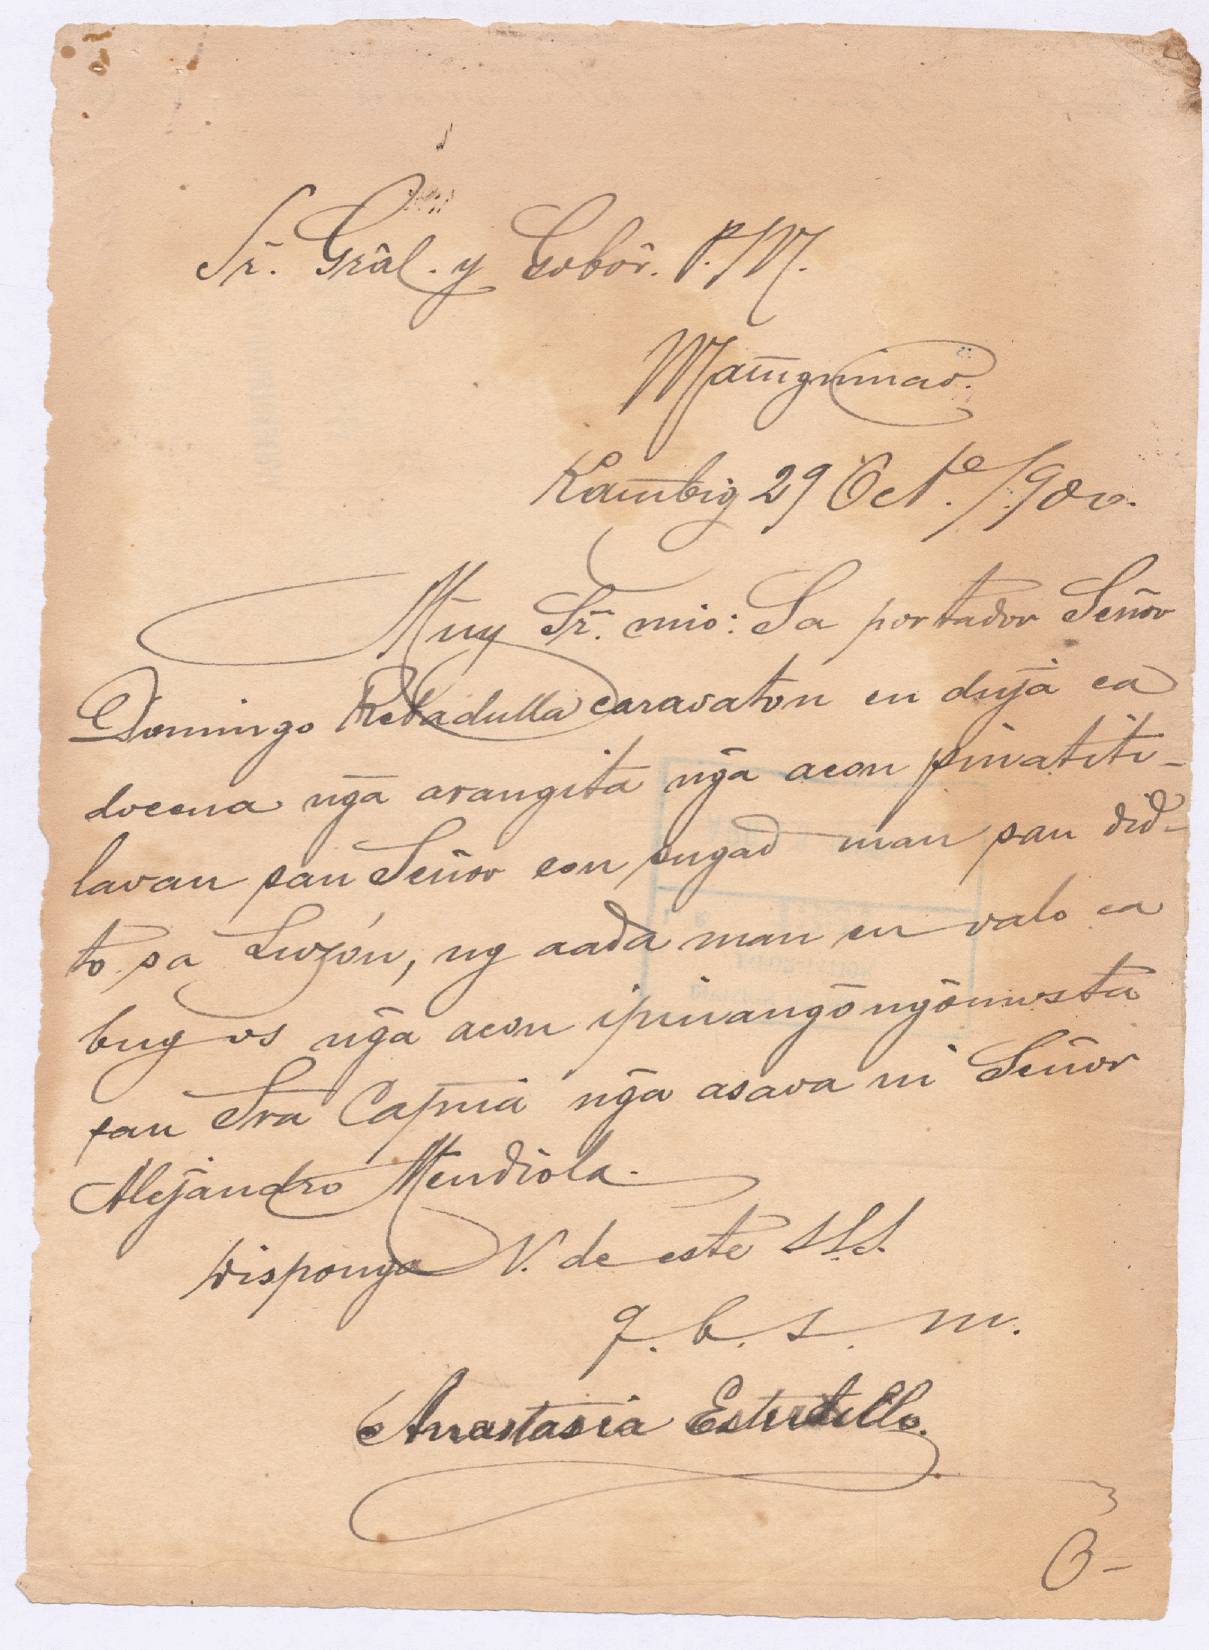 Sr. Gral. y Gobor. P. M.
Matuguinao.
Kambig 29 Octe./900.
Muy Sr. mio: Sa portador Señor
Domingo Rebadulla caravaton en duja ca
docena ñga arangita ñga acon pinatiti-
lavan san Señor con sugad man san did-
to sa Luzón, ug aada man en valo ca
bug os ñga acon ipinangongomosta
san Sra Capnia ñga asava ni Señor
Alejandro Mendiola.
Disponga V. de este S.S.S.
q. b. s. m.
Anastasia Estudillo.